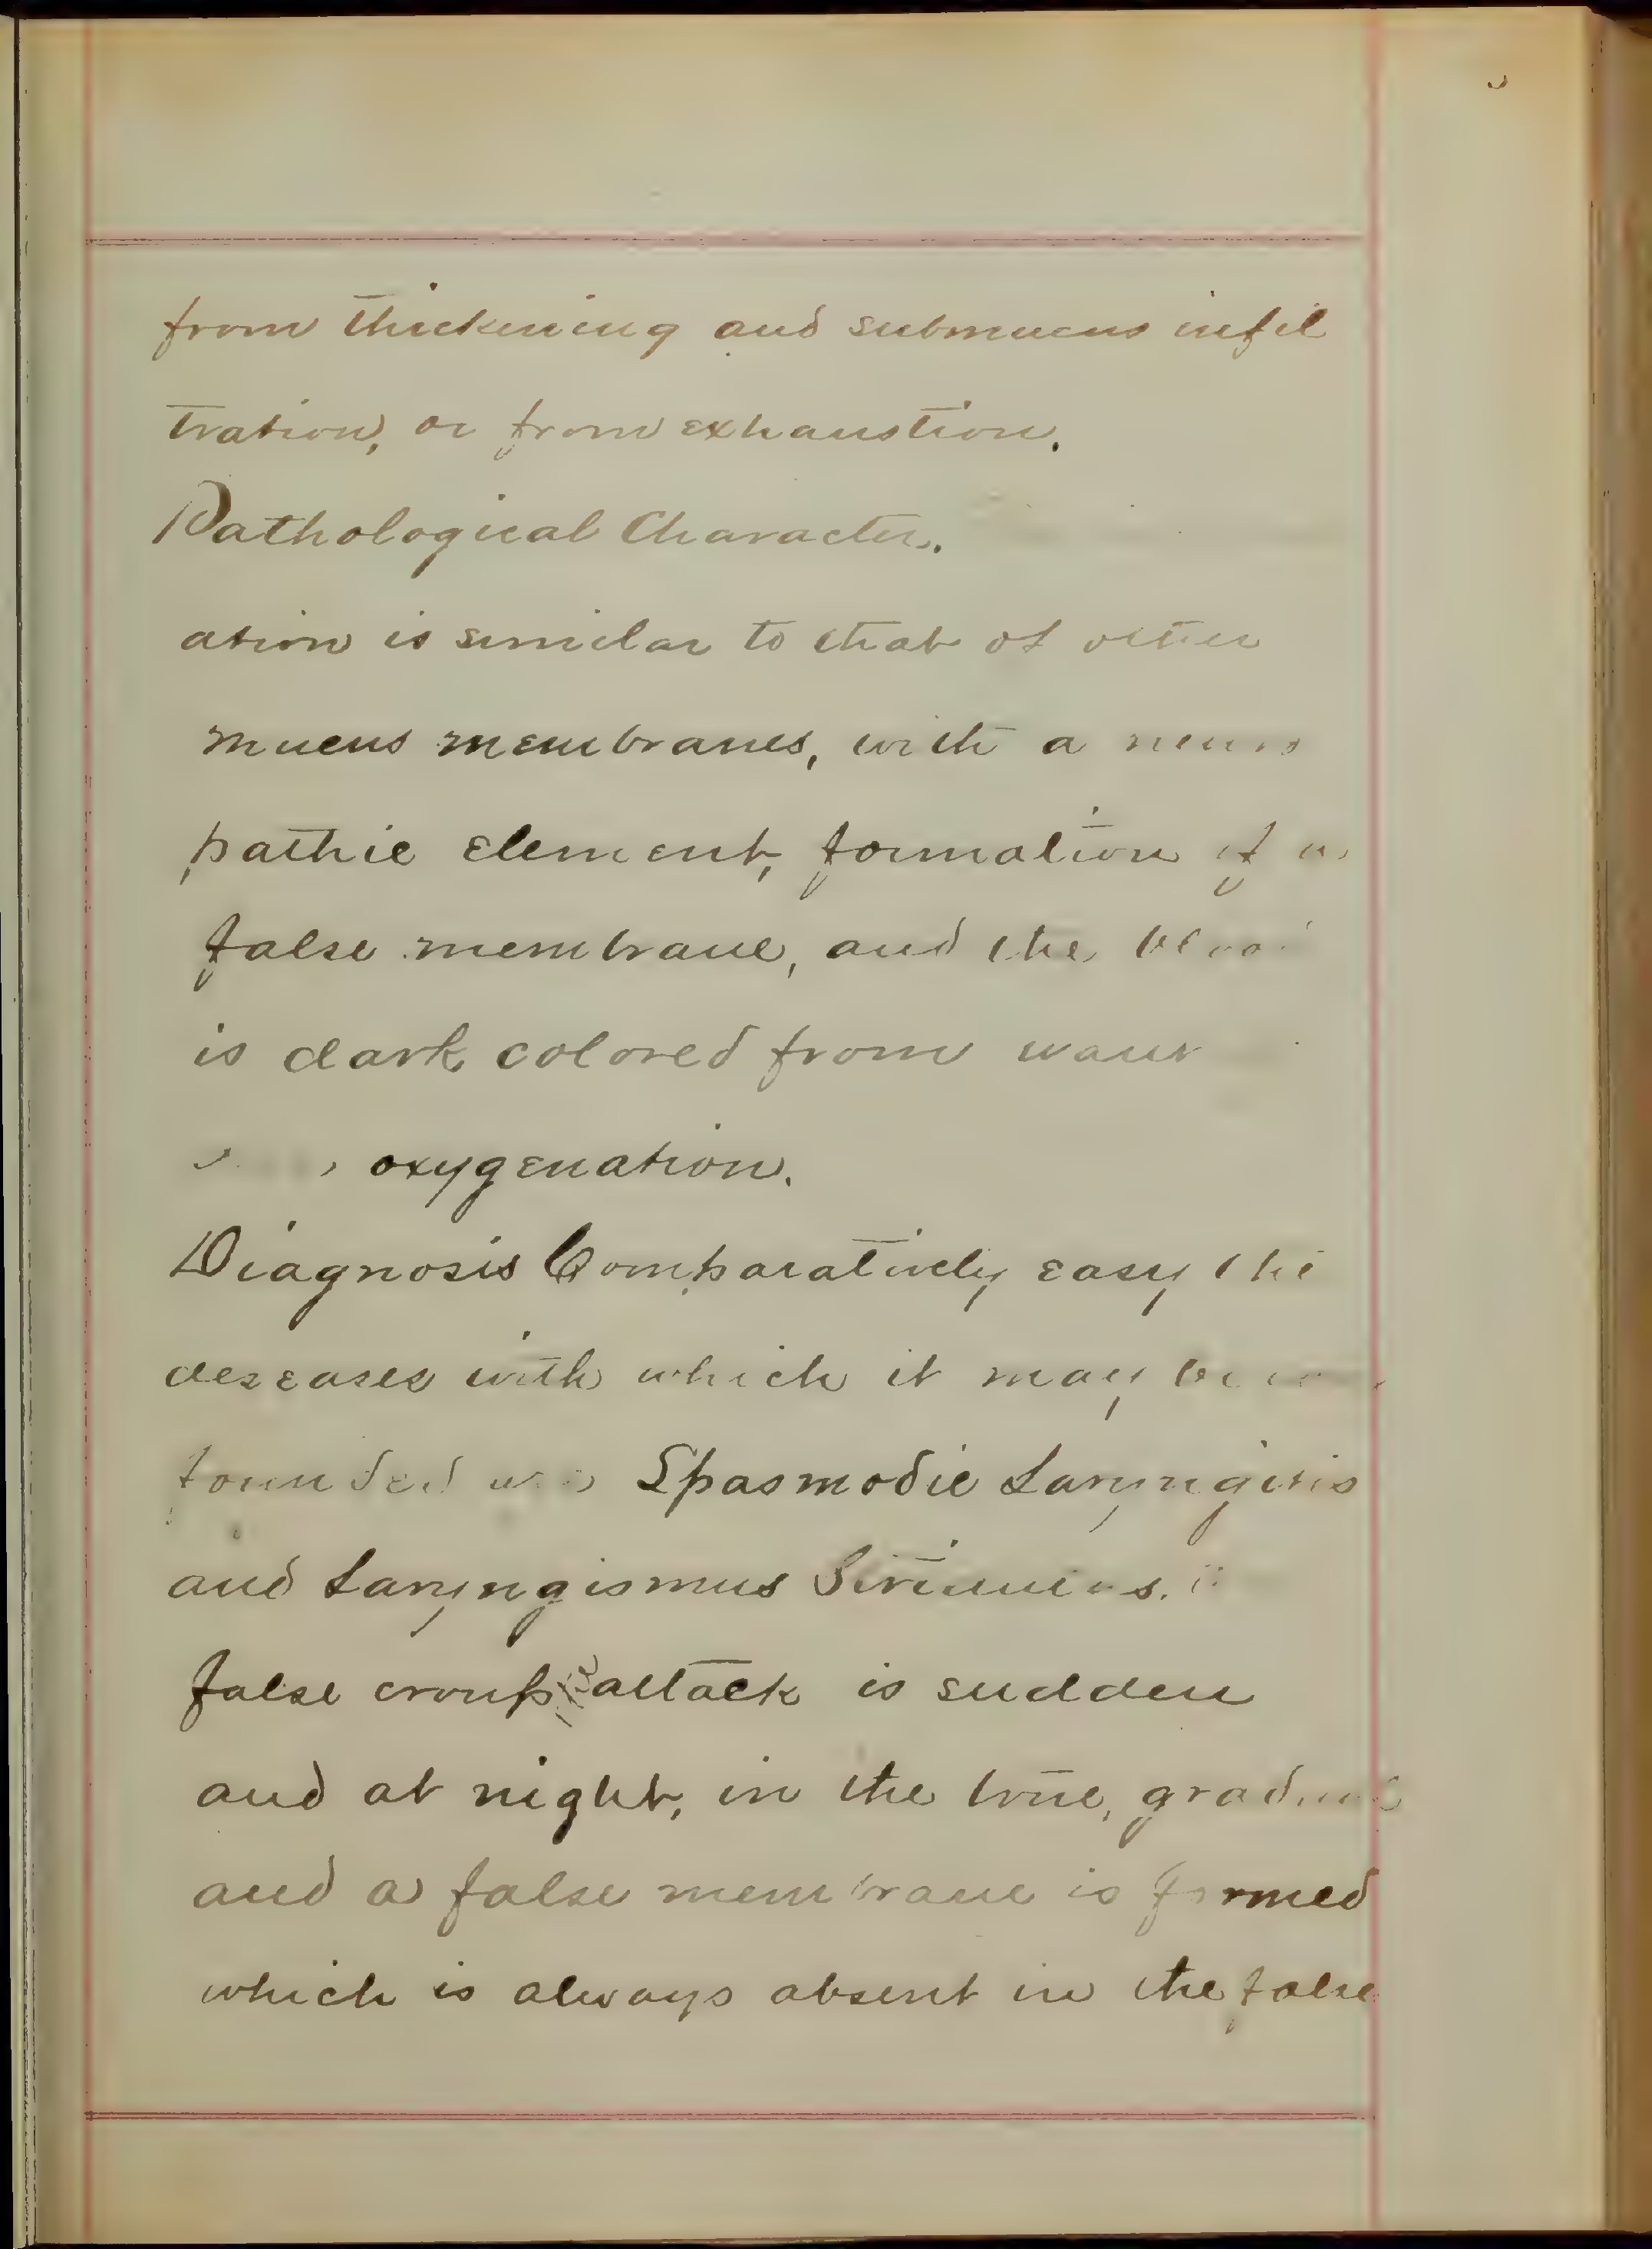 from thickening and submucus infil
tration, or from exhaustion.
Pathological Character.
ation is similar to that of other
mucus membranes, with a neuro
pathic element, formation of a
false membrane, and the blood
is dark colored from want
oxygenation.
Diagnosis Comparatively easy the
deseases with which it may be
founded are Spasmodic Laryngitis
and Laryngismus Stridulus.
false croup the attack is sudden
and at night, in the true, gradual
and a false membrane is formed
which is always absent in the false